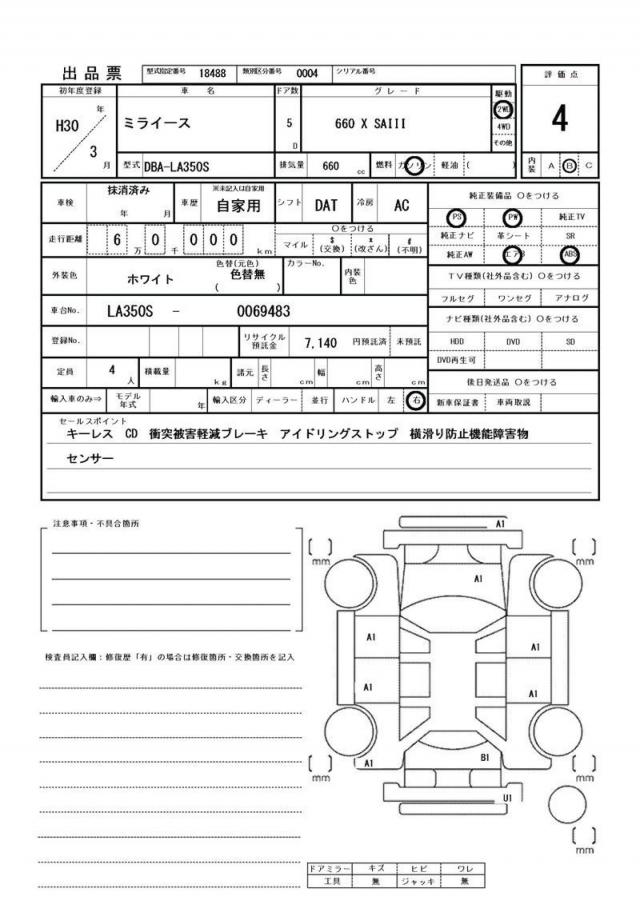 出品票 型式指定番号 18488 類別区分番号 0004 シリアル番号
評価点
初年度登録 車名 ドア数 グレード 駆動
H30 年 ミライース 5 D 660 X SAIII 2WD 4WD その他 4
3 月 型式 DBA-LA350S 排気量 660 cc 燃料 ガソリン 軽油 ( ) 内装 A B C
車検 抹消済み 年 月 車歴 ※未記入は自家用 自家用 シフト DAT 冷房 AC
純正装備品 〇をつける
走行距離 6 万 0 千 0 0 0 km 〇をつける マイル $ (交換) * (改ざん) # (不明)
PS PW 純正TV
純正ナビ 革シート SR
純正AW エアB ABS
外装色 ホワイト 色替(元色) 色替無 ( ) カラーNo. 内装色
TV種類(社外品含む) 〇をつける
フルセグ ワンセグ アナログ
車台No. LA350S - 0069483
ナビ種類(社外品含む) 〇をつける
登録No. リサイクル預託金 7,140 円預託済 未預託
HDD DVD SD
DVD再生可
定員 4 人 積載量 kg 諸元 長さ cm 幅 cm 高さ cm
後日発送品 〇をつける
輸入車のみ⇒ モデル年式 年 輸入区分 ディーラー 並行 ハンドル 左 右
新車保証書 車両取説
セールスポイント
キーレス CD 衝突被害軽減ブレーキ アイドリングストップ 横滑り防止機能障害物
センサー
注意事項・不具合箇所
検査員記入欄：修復歴「有」の場合は修復箇所・交換箇所を記入
A1
[ ] mm [ ] mm
A1
A1 A1
A1 A1
A1 B1
[ ] mm [ ] mm
U1
[ ] mm
ドアミラー キズ ヒビ ワレ
工具 無 ジャッキ 無